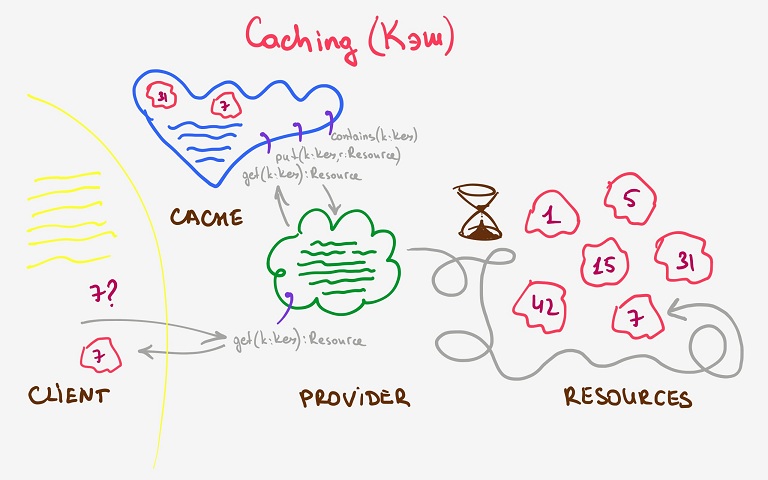 Caching (Кэш)
31
7
contains(k:Key)
put(k:Key, r:Resource)
get(k:Key):Resource
CACHE
7?
7
get(k:Key):Resource
CLIENT
PROVIDER
1
5
15
31
42
7
RESOURCES